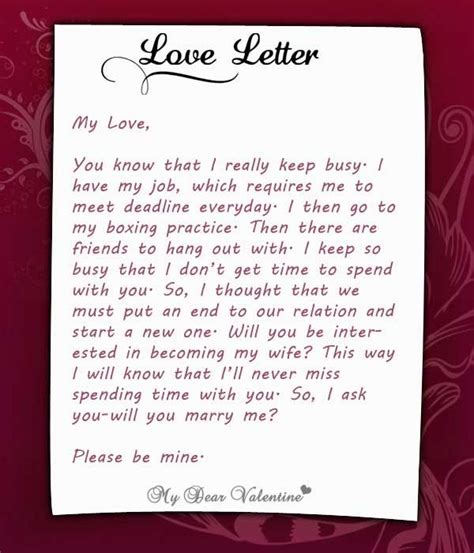 Love Letter
My Love,
You know that I really keep busy. I
have my job, which requires me to
meet deadline everyday. I then go to
my boxing practice. Then there are
friends to hang out with. I keep so
busy that I don't get time to spend
with you. So, I thought that we
must put an end to our relation and
start a new one. Will you be inter-
ested in becoming my wife? This way
I will know that I'll never miss
spending time with you. So, I ask
you-will you marry me?
Please be mine.
My Dear Valentine